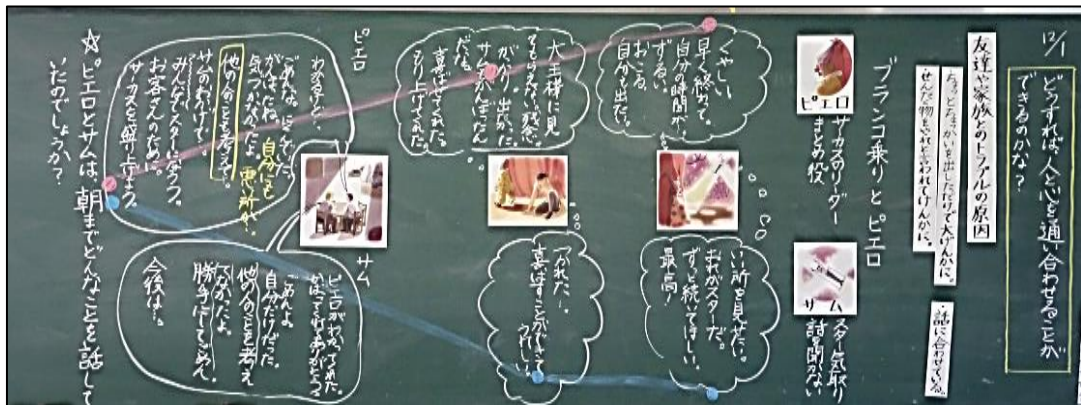 12/1
どうすれば、人と心を通い合わせることが
できるのかな？
友達や家族とのトラブルの原因
・ちょっとちょっかいを出しただけで大げんかに。
・話に合わせている。
ブランコ乗りとピエロ
ピエロ
サーカスのリーダー
まとめ役
サム
スター気取り
くやしい
早く終わって。
自分の時間が…
ずるい。
おこる。
自分も出た。
いい所を見せたい。
おれがスターだ。
ずっと続いてほしい。
最高！
大王様に見
てもらえない。残念。
サムもがんばったん
だな。
喜ばせてくれた。
もり上げてくれた。
つかれた…
喜ばすことができて
うれしい。
ピエロ
ごめんな。にくんでいた。
がんばったね。自分にも
気づかなかったよ。悪い所が…
他の人のことも考えて。
サムのおかげで。
みんながスターになろう。
お客さんのために。
サーカスを盛り上げよう。
サム
ピエロがわかってくれた。
ごめんよ
自分だけだった
他の人のことを考え
てなかったよ。
勝手にしてごめん。
今後は…
☆ピエロとサムは、朝までどんなことを話して
いたのでしょうか？